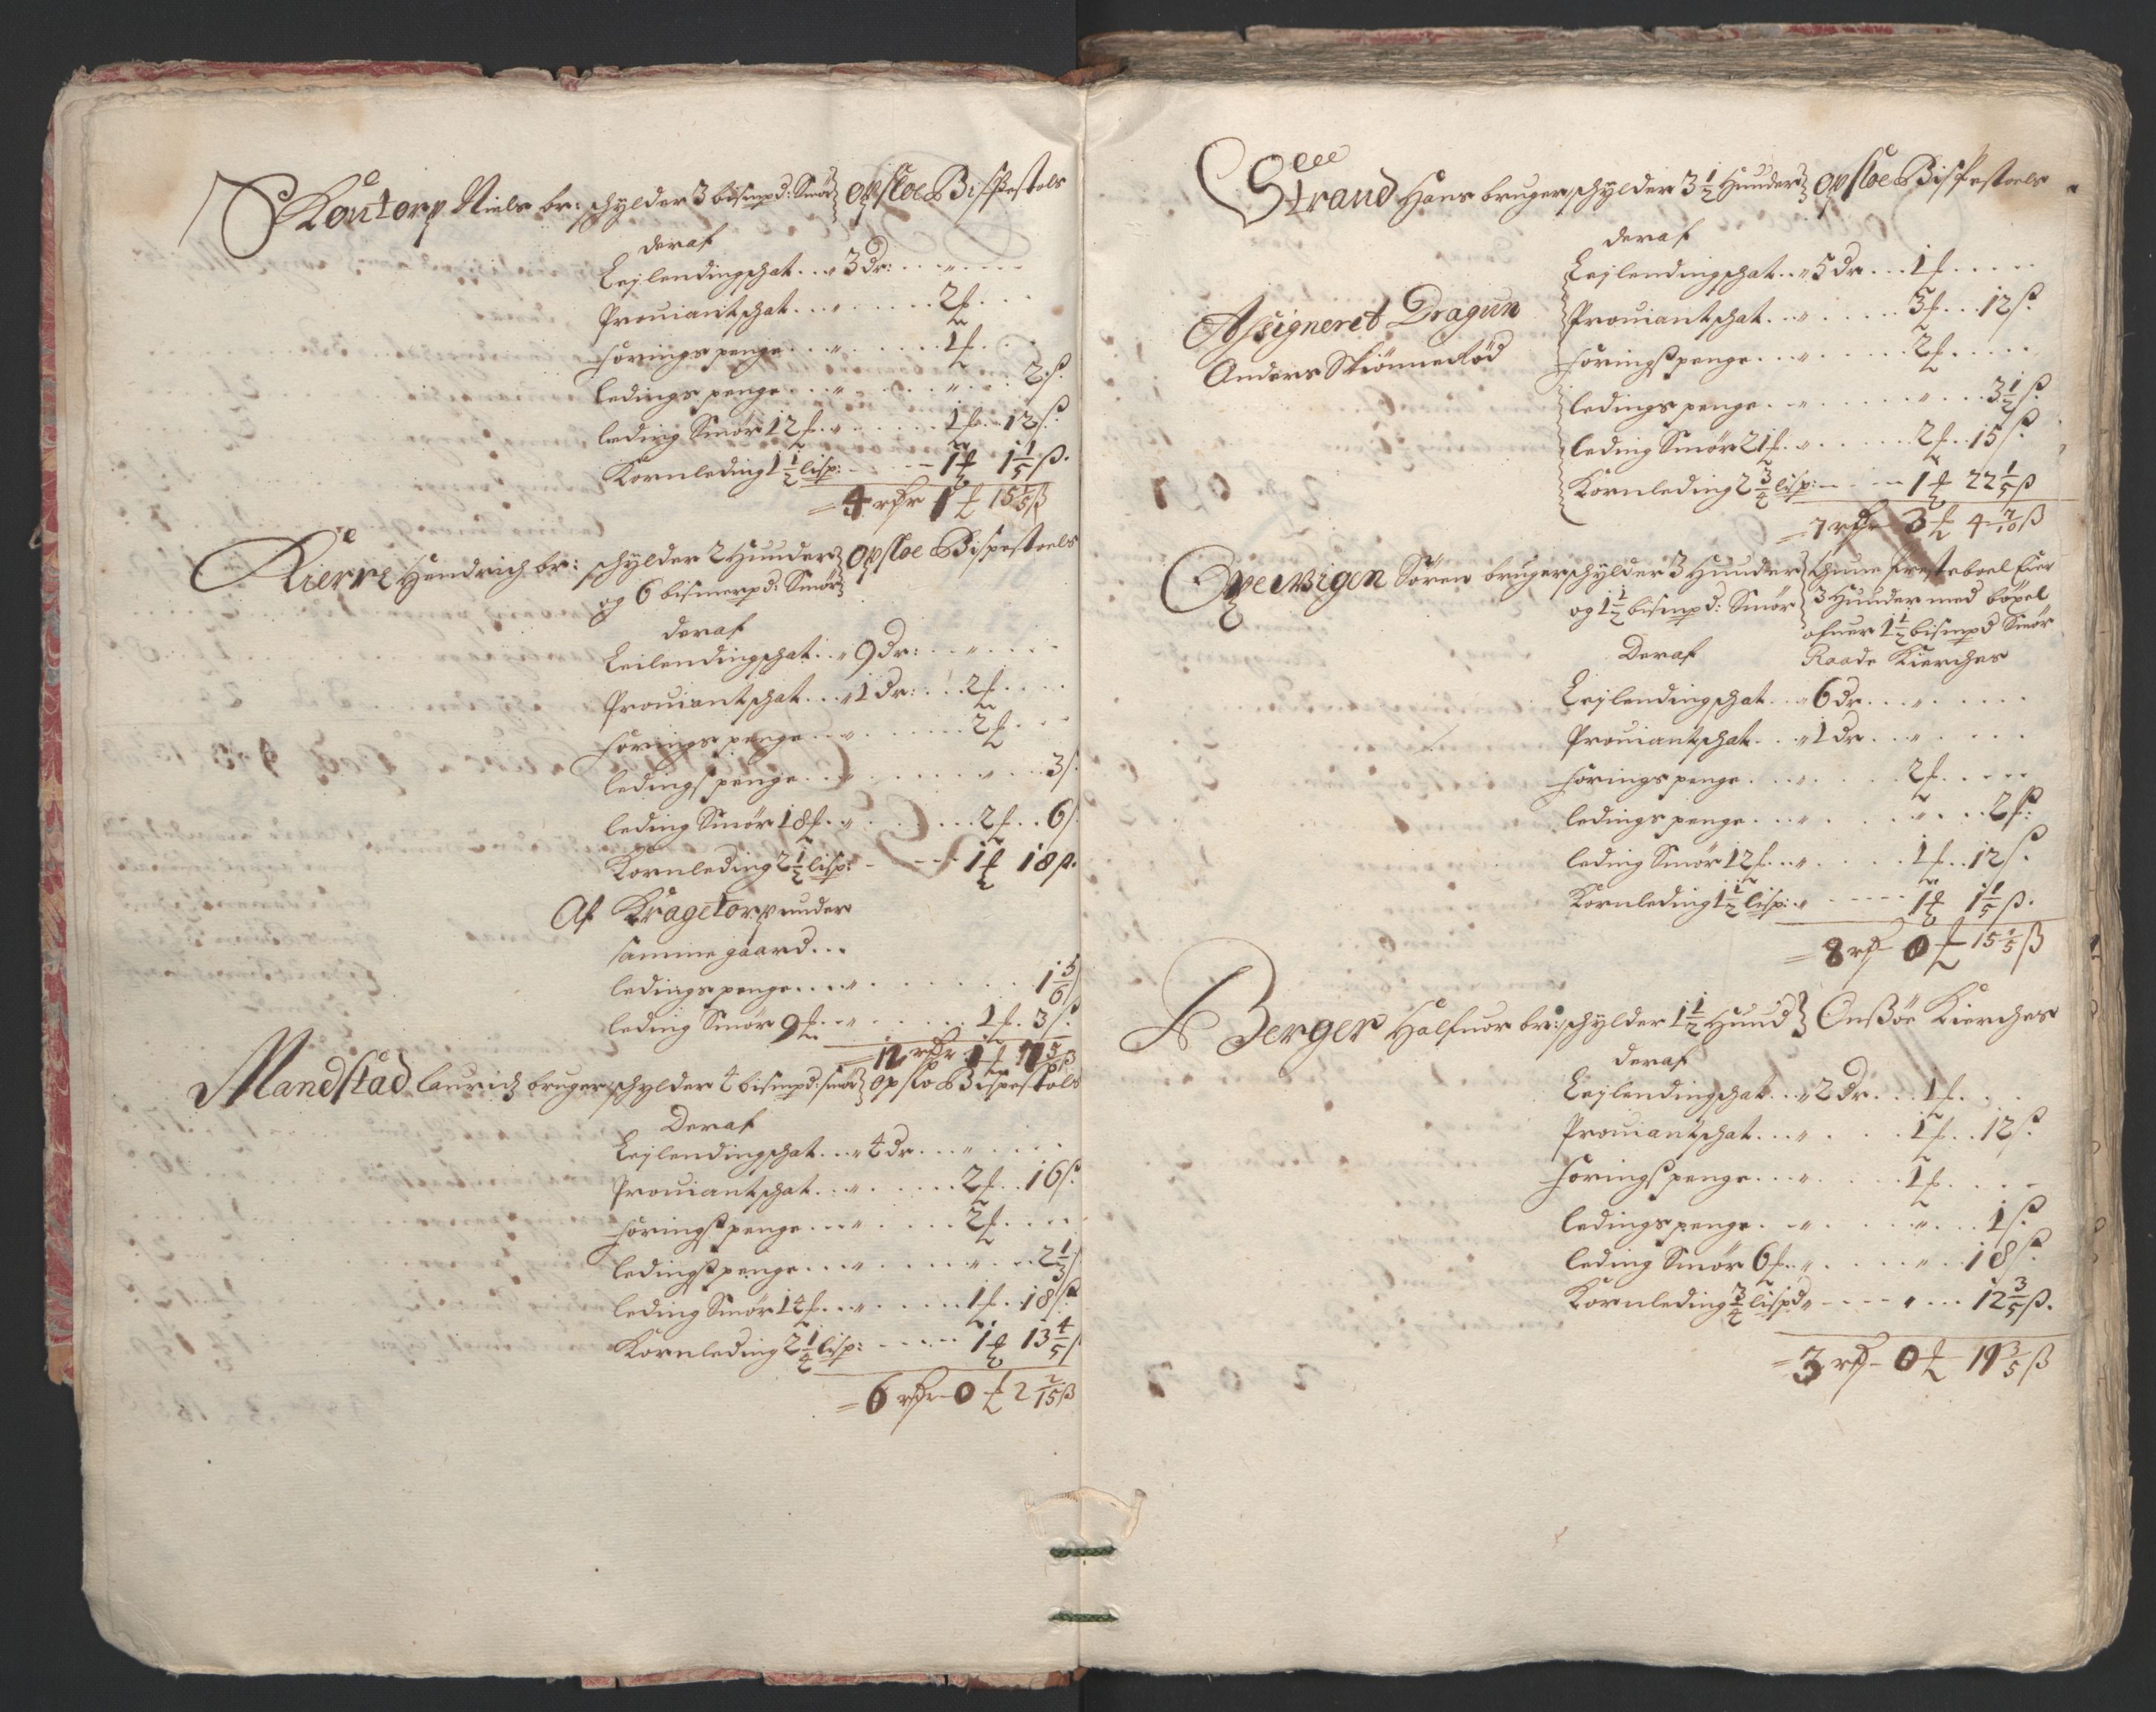 Kontorp Niels br: schylder 3 bismpd: Smør Opsloe Bispestols
deraf
Leylendingschat . . „ 3 dr: . . „ . . .
Prouiantschat . . . „ . . . . . 2 f . . .
Foringspenge . . . „ . . . . . 1 f . . .
ledingspenge . . . „ . . . „ . . 2 ß.
leding Smør 12 f . . „ . . . . 1 f . . 12 ß.
Kornleding 1½ lisp: - - - 1 f 1 1/5 ß.
= 4 rdr 1 f 15 1/5 ß
Kierre Hendrich br: schylder 2 Hunder Opsloe Bispestoels
og 6 bismerpd: Smør
deraf
Leilendingschat . . „ 9 dr: . . „ . . .
Prouiantschat . . „ 1 dr: . . 2 f . . .
Foringspenge . . . „ . . . . . 2 f . . .
ledingspenge . . . „ . . . „ . . 3 ß.
leding Smør 18 f . . „ . . . . 2 f . . 6 ß
Kornleding 2½ lisp: - - - 1 f 18 ß.
Af Kragetorp under
samme gaard . . .
ledingspenge . . . . „ . . . . . 1 5/6 ß
leding Smør 9 f . . „ . . . . 1 f . 3 ß.
= 12 rdr 1 f
Mandstad Laurich bruger schylder 4 bismpd: smør Opslo Bispestols
Deraf
Leylendingschat . . „ 4 dr . . „ . . .
Prouiantschat . . „ . . . . . 2 f . . 16 ß.
Foringspenge . . . „ . . . . 2 f . . .
ledingspenge . . . „ . . . „ . . 2 1/3 ß
leding Smør 14 f . . „ . . . . 1 f . 18 ß.
Kornleding 2¼ lisp: - - - 1 f 13 4/5 ß
= 6 rdr - 0 f 2 2/15 ß
Strand Hans bruger schylder 3½ Hunder Opsloe Bispestoels
deraf
Leylendingschat . . „ 5 dr . . . 1 f . . . .
Assigneret Dragun
Prouiantschat . . . „ . . . . . 3 f . . . 12 ß.
Anders Skiønnerød
Foringspenge . . . „ . . . . . 2 f . . . .
ledingspenge . . „ . . . . . „ . . . 3½ ß.
leding Smør 21 f . . „ . . . . . 2 f . . 15 ß.
Kornleding 2¾ lisp: - - - - 1 f 22 1/5 ß
= 7 rdr - 3 f 4 7/10 ß
Overvigen Søren bruger schylder 3 Hunder
og 1½ bismpd: Smør 3 Hunder med bøxel
ofuer 1½ bismpd Smør
Deraf Raade Kierches
Leylendingschat . . „ 6 dr . . . „ . . . .
Prouiantschat . . . „ 1 dr . . . „ . . . .
Foringspenge . . . . „ . . . . 2 f . . . .
ledingspenge . . . „ . . . . „ . . . 2 ß.
leding Smør 12 f . . . „ . . . . 1 f . . 12 ß.
Kornleding 1½ lisp: „ - - - - 1 f 1 1/5 ß.
= 8 rd - 0 f 15 1/5 ß
Berger Halfuor br: schylder 1½ Hund Onßøe Kierches
deraf
Leylendingschat . . . „ 2 dr . . . 1 f . . .
Prouiantschat . . . „ . . . . 1 f . . 12 ß.
Foringspenge . . . „ . . . . 1 f . . . .
ledingspenge . . „ . . . . „ . . . 1 ß.
leding Smør 6 f . . „ . . . . „ . . 18 ß.
Kornleding ¾ lispd „ - - - - „ . . . 12 3/5 ß.
= 3 rd - 0 f - 19 3/5 ß